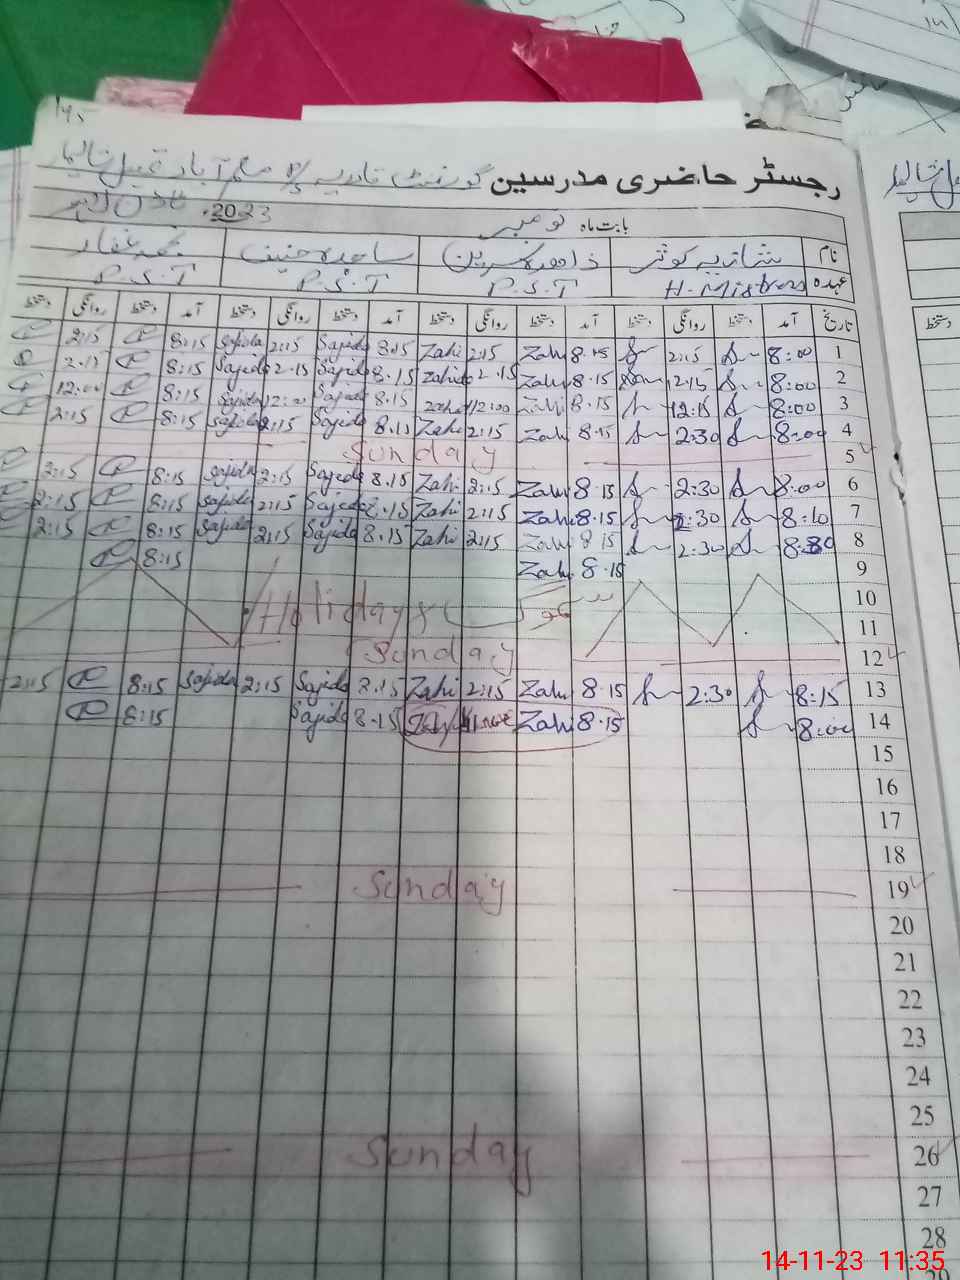 195
رجسٹر حاضری مدرسین گورنمنٹ
بابت ماہ نومبر 2023
نام شازیہ کوثر زاہدہ نسرین ساجدہ حنیف نجمہ غفار
عہدہ H-Mistress P.S.T P.S.T P.S.T
تاریخ آمد دستخط روانگی دستخط آمد دستخط روانگی دستخط آمد دستخط روانگی دستخط آمد دستخط روانگی دستخط
1 8:00 2:15 8.15 Zahi 2:15 Zahi 8.15 Sajida 2:15 Sajida 8:15 2:15
2 8:00 2:15 8.15 Zahi 2.15 Zahida 8.15 Sajida 2.15 Sajida 8:15 2.15
3 8:00 12:15 8.15 Zahi 12:00 Zahi 8.15 Sajida 12:00 Sajida 8:15 12:00
4 8:00 2:30 8.15 Zahi 2:15 Zahi 8.15 Sajida 2:15 Sajida 8:15 2:15
5 Sunday
6 8:00 2:30 8.15 Zahi 2:15 Zahi 8.15 Sajida 2:15 Sajida 8:15 2:15
7 8:10 2:30 8.15 Zahi 2:15 Zahi 8.15 Sajida 2:15 Sajida 8:15 2:15
8 2:30 8.15 Zahi 2:15 Zahi 8.15 Sajida 2:15 Sajida 8:15 2:15
9 8.15 Zahi 8:15
10 Holidays
11
12 Sunday
13 8:15 2:30 8.15 Zahi 2:15 Zahi 8.15 Sajida 2:15 Sajida 8:15 2:15
14 8:00 8.15 Zahi 8.15 Sajida 8:15
15
16
17
18
19 Sunday
20
21
22
23
24
25
26 Sunday
27
28
29
دستخط
14-11-23 11:35